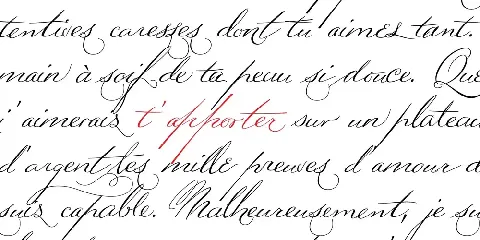 tentives caresses dont tu aimes tant.
main à soif de ta peau si douce. Que
j'aimerais t'apporter sur un plateau
d'argent les mille preuves d'amour d
suis capable. Malheureusement, je su